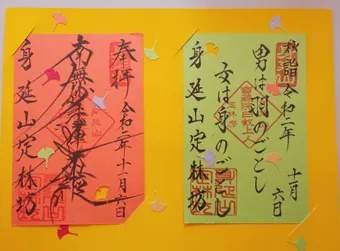 奉拝 令和二年十一月六日
南無妙法蓮華経
身延山定林坊
令和二年
十一月
六日
男は羽のごとし
女は身のごとし
身延山定林坊